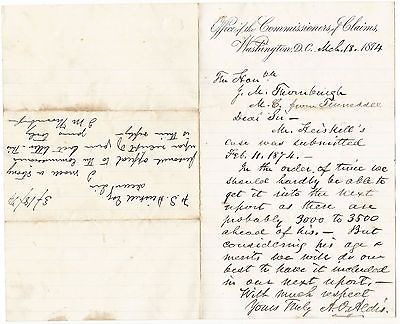 Office of the Commissioners of Claims,
Washington, D.C. Mch. 18. 1874
The Honble
J. M. Thornburgh
M. C. from Tennessee
Dear Sir -
Mr. Heiskell's
case was submitted
Feb. 11. 1874. -
In the order of time we
should hardly be able to
get it into the next
report as there are
probably 3000 to 3500
ahead of his. - But
considering his age &
ments we will do our
best to have it included
in our next report. -
With much respect
Yours truly A. O. Aldis.
3/18/74
Esq
Dear Sir
I made a strong
personal appeal to the Commissioners
upon receipt of your last letter. This
is their reply -
Yours truly
J M Thornburgh